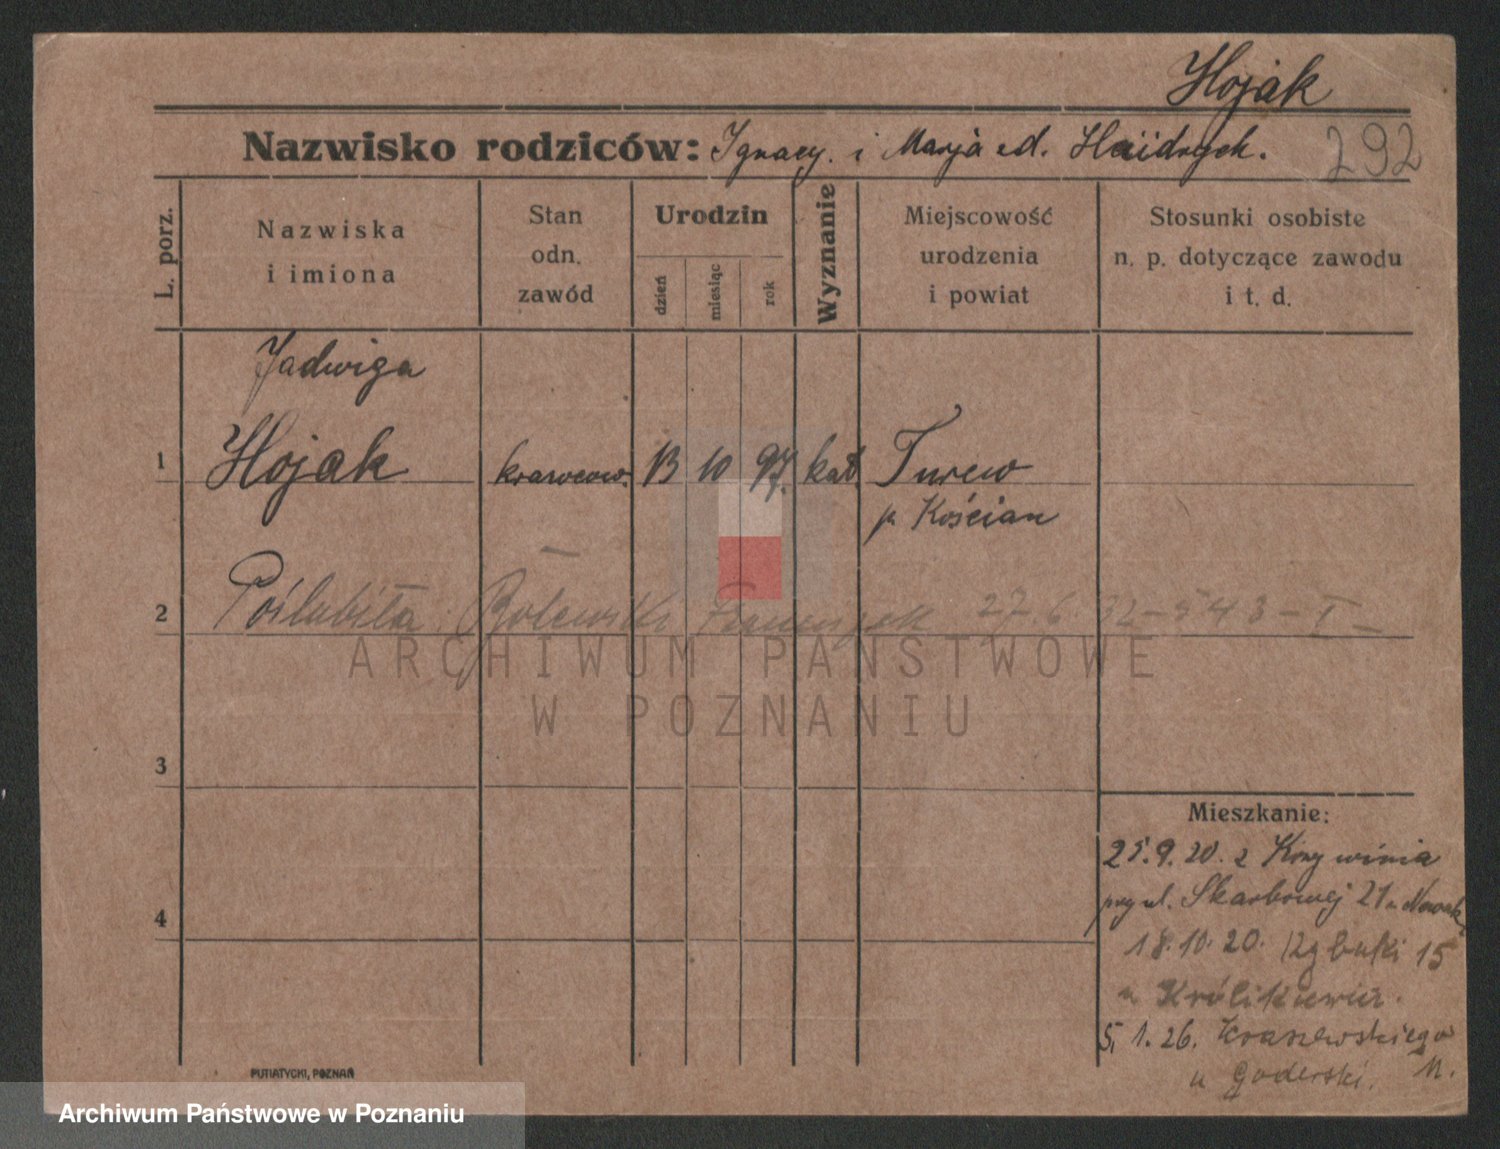 Hojak
Nazwisko rodziców: Ignacy i Marja ed. Haidrych.
292
L. porz.
Nazwiska
i imiona
Stan
odn.
zawód
Urodzin
dzień
miesiąc
rok
Wyznanie
Miejscowość
urodzenia
i powiat
Stosunki osobiste
n. p. dotyczące zawodu
i t. d.
Jadwiga
1 Hojak krawcow. 13 10 97. kat Turew
p Kościan
2 Poślubiła Bolewski Franciszek 27 6 32-543-I-
ARCHIWUM PAŃSTWOWE
W POZNANIU
3
Mieszkanie:
25.9.20. z winia
4
ul. Skarbowej 21 u Nowak
18.10.20. 15
u Królikiewicz.
5.1.26. Kraszewskiego
u Goderski. 11.
PUTIATYCKI, POZNAŃ
Archiwum Państwowe w Poznaniu